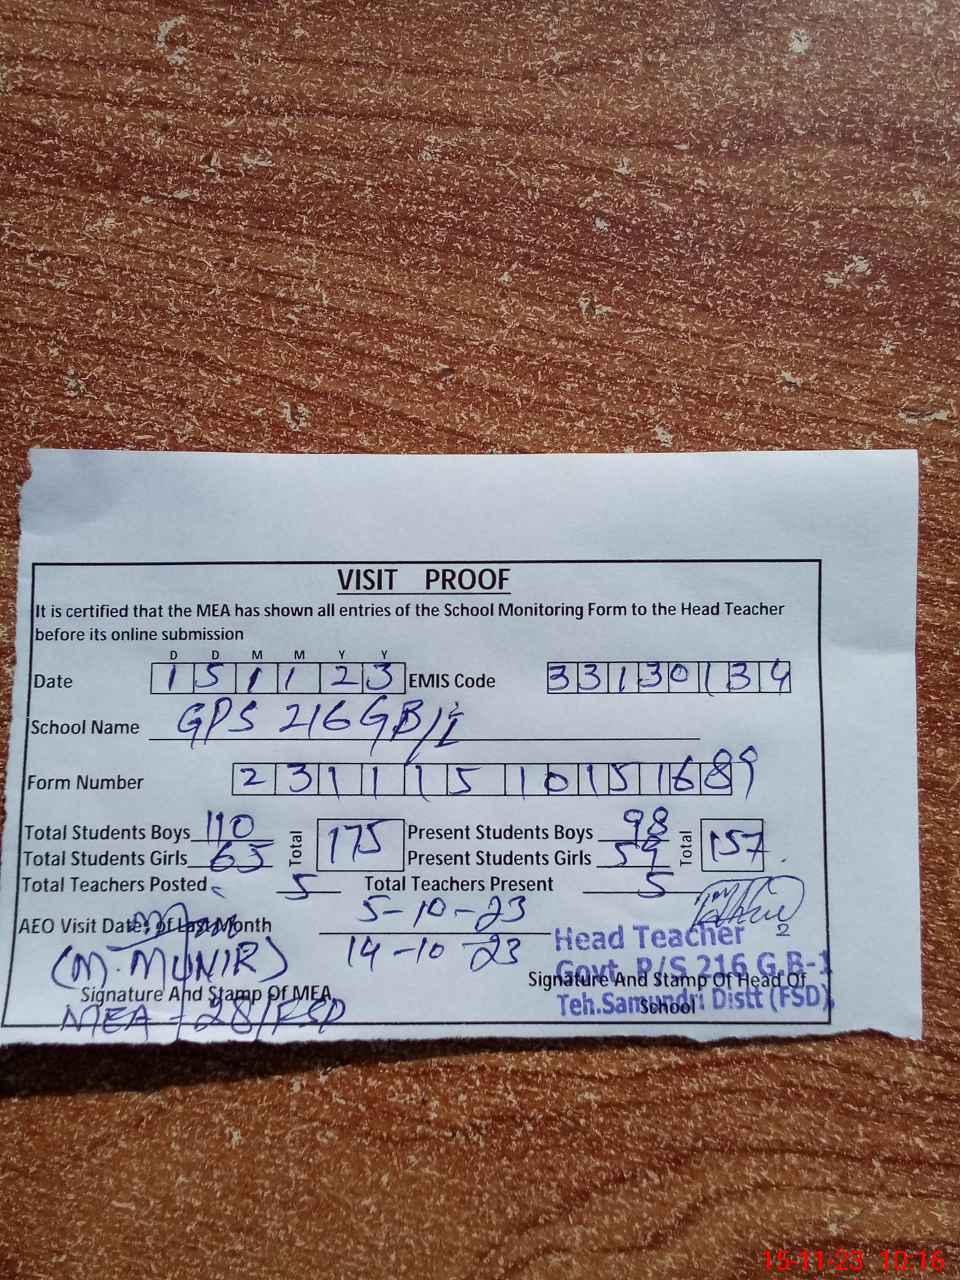 VISIT PROOF
It is certified that the MEA has shown all entries of the School Monitoring Form to the Head Teacher
before its online submission
D D M M Y Y
Date 1 5 1 1 2 3 EMIS Code 3 3 1 3 0 1 3 4
School Name GPS 216 GB/I
Form Number 2 3 1 1 1 5 1 0 1 5 1 6 8 9
Total Students Boys 110 Total 175 Present Students Boys 98 Total 157
Total Students Girls 65 Present Students Girls 59
Total Teachers Posted 5 Total Teachers Present 5
AEO Visit Dates of Last Month 5-10-23
14-10-23
(M. MUNIR)
Signature And Stamp Of MEA
MEA-28/FSD
Head Teacher
Govt. P/S 216 G.B-1
Signature And Stamp Of Head Of
School
Teh.Samundri Distt (FSD)
15-11-23 10:16